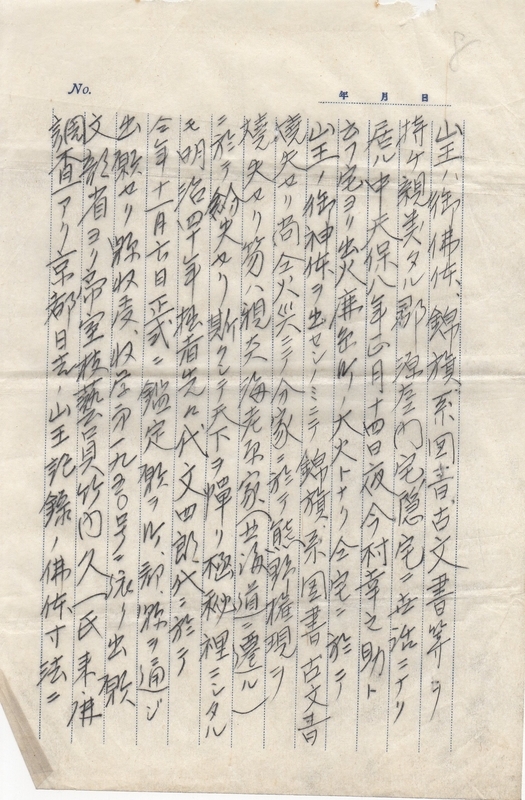 8
No.
年 月 日
山王ハ御佛体、錦旗系図書、古文書等ヲ
持ケ親类タル郡源左エ門宅隠宅ニ世話ニナリ
居ル中天保八年正月十四日夜今村幸之助ト
云フ宅ヨリ出火 町ノ大火トナリ仝宅ニ於テ
山王ノ御神体ヲ出セシノミニテ錦旗系図書古文書
焼失セリ尚仝火災ニテ分家ニ於テ熊野権現ヲ
焼失セリ ハ親类海老原家(北海道ニ遷ル)
ニ於テ紛失セリ斯クシテ天下ヲ憚リ極秘裡ニシタル
モ明治四十年拙者先代文四郎代ニ於テ
仝年十一月六日正式ニ鑑定願ヲ町、郡、縣ヲ通ジ
出願セリ縣收受、收学第一九五〇号ニ依リ出願
文部省ヨリ帝室技藝員竹内久一氏来
調査アリ京都日吉ノ山王記録ノ佛体寸法ニ